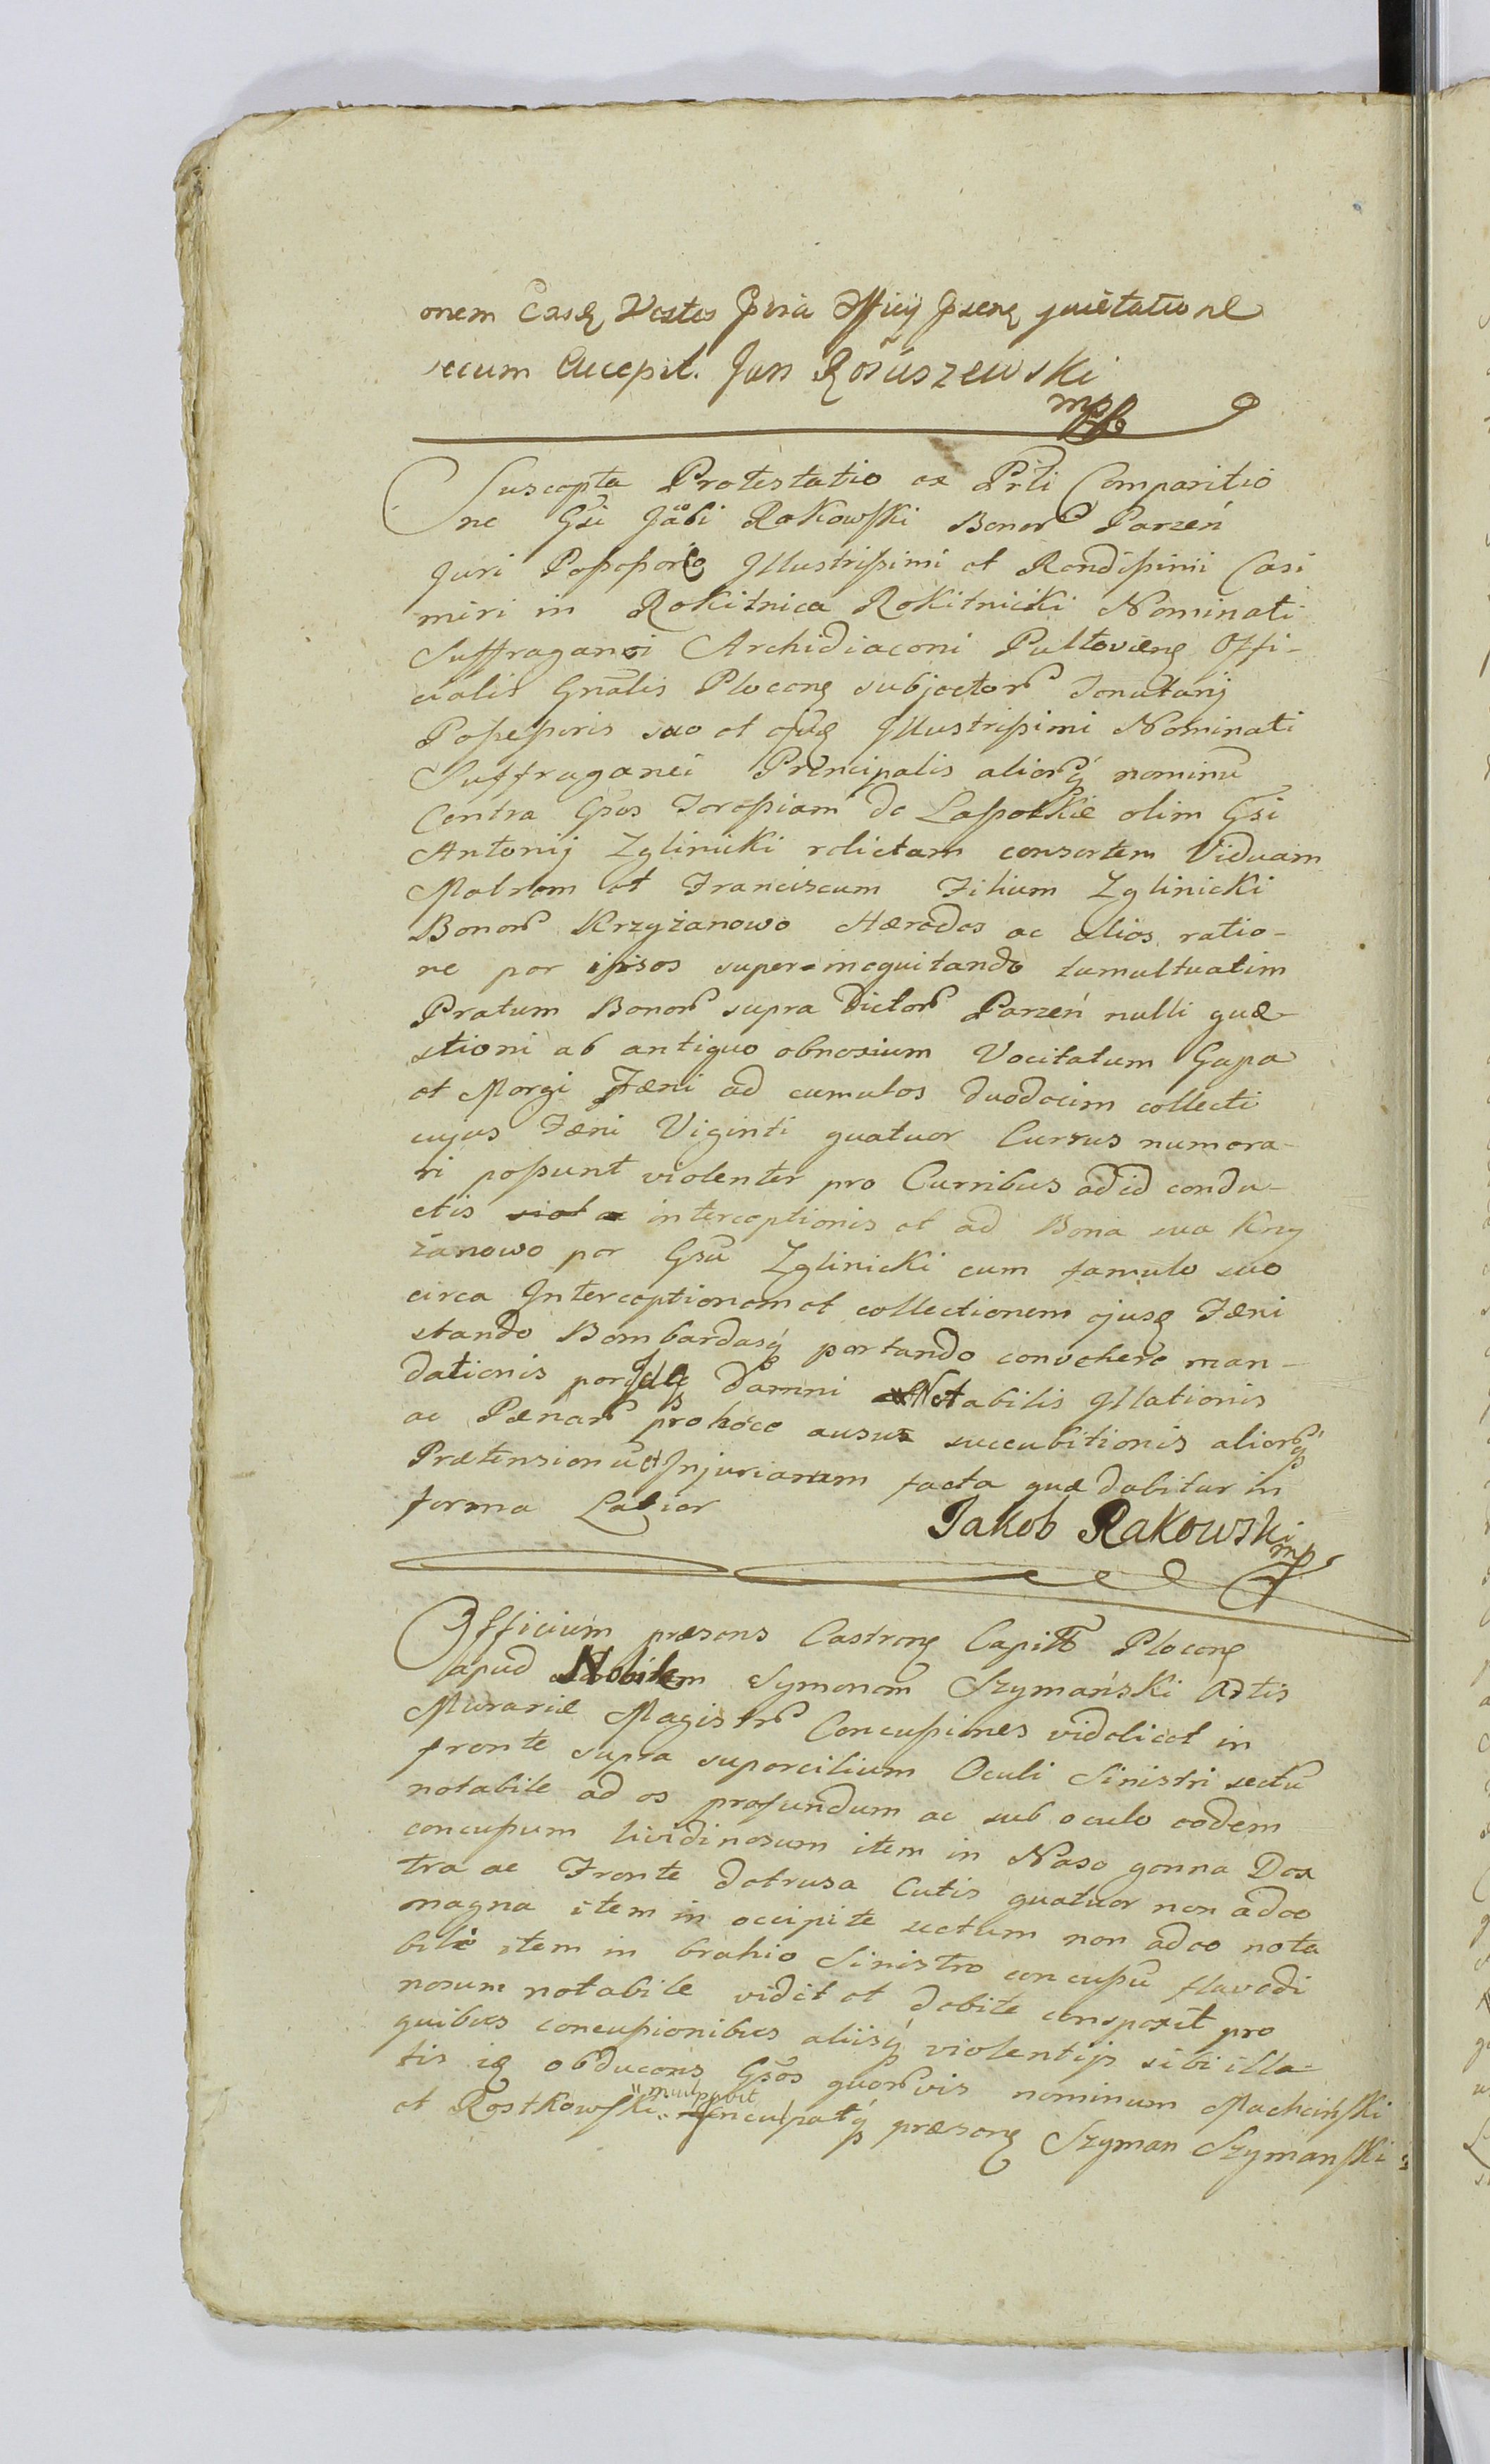 onem Easꝗ Vestes Officij quietatione
secum Accepit. Jan Rosuszewski
mp
Suscepta Protestatio ex Prti Comparitio
ne Gsi Jacobi Rakowski Bonorꝝ Parzeń
Juri Possessorio Illustrissimi et Rendissimi Casi
miri in Rokitnica Rokitnicki Nominati
Suffraganei Archidiaconi Pultoviens Offi-
cialis Gnalis Plocens subjector Tenutarij
Possessoris suo et Illustrissimi Nominati
Suffraganei Principalis aliorqꝫ nominū
Contra Gsos Teressiam de Lasockie olim Gsi
Antonij Zglinicki relictam consortem Viduam
Matrem et Franciscum Filium Zglinicki
Bonorꝝ Krzyżanowo Hæredes ac alios ratio-
ne per ipsos super-inequitando tumultuatim
Pratum Bonorꝝ supra Dictorꝝ Parzeń nulli quæ-
stioni ab antiquo obnoxium Vocitatum Gapa
et Morgi Fæni ad cumulos duodecim collecti
cujus Fæni Viginti quatuor Currus numera-
ri possunt violenter pro Curribus ad id condu-
ctis interceptionis et ad Bona sua Krzy
żanowo per Gsū Zglinicki cum famulo suo
circa Interceptionem et collectionem ejusꝗ Fæni
stando Bombardasqꝫ portando convehere man-
dationis damni Notabilis Illationis
ac Pænarꝝ pro hocce ausu succubitionis aliorqꝫ
Prætensionū et Injuriarum facta quæ dabitur in
forma Latior
Jakob Rakowski
mp
Officium præsens Castrens Capitle Plocens
apud Nobilem Symonem Szymański Artis
Murariæ Magistrꝝ Concussiones videlicet in
fronte supra supercilium Oculi Sinistri sectū
notabile ad os profundum ac sub oculo eodem
concussum lividinosum item in Naso genna Dex
tra ac Fronte detrusa Cutis quatuor non adeo
magna item in occipite sectum non adeo nota
bile item in brahio Sinistro concussū flavedi
nosum notabile vidit et debite conspexit pro
quibus concussionibus aliisqꝫ violentijs sibi illa-
tis obducens Gsos quorꝝvis nominum Machciński
et Rostkowski inculpavit præsens Szyman Szymański